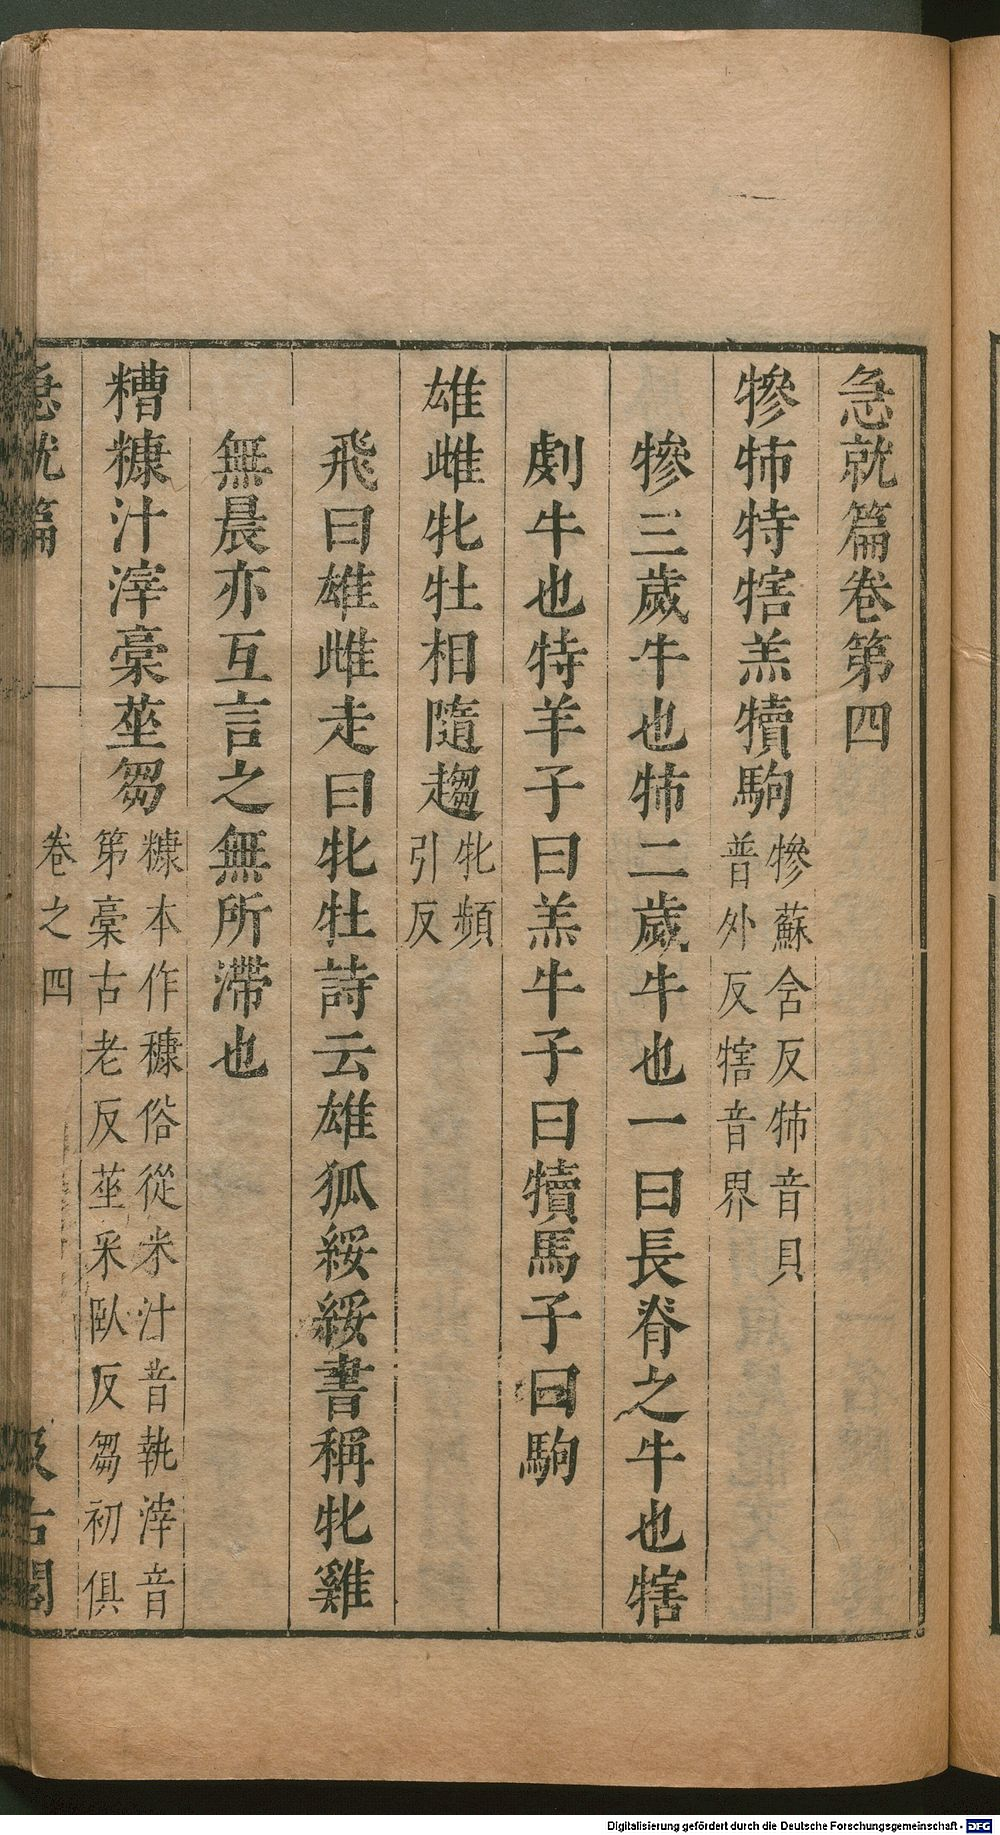 急就篇卷第四
犙㸬特犗羔犢駒犙蘇含反㸬音貝普外反犗音界
犙三歲牛也㸬二歲牛也一曰長脊之牛也犗
劇牛也特羊子曰羔牛子曰犢馬子曰駒
雄雌牝牡相隨趨牝頻引反
飛曰雄雌走曰牝牡詩云雄狐綏綏書稱牝雞
無晨亦互言之無所滯也
糟糠汁滓稾莝芻糠本作穅俗從米汁音執滓音第稾古老反莝采臥反芻初俱
急就篇 卷之四 汲古閣
Digitalisierung gefördert durch die Deutsche Forschungsgemeinschaft - DFG